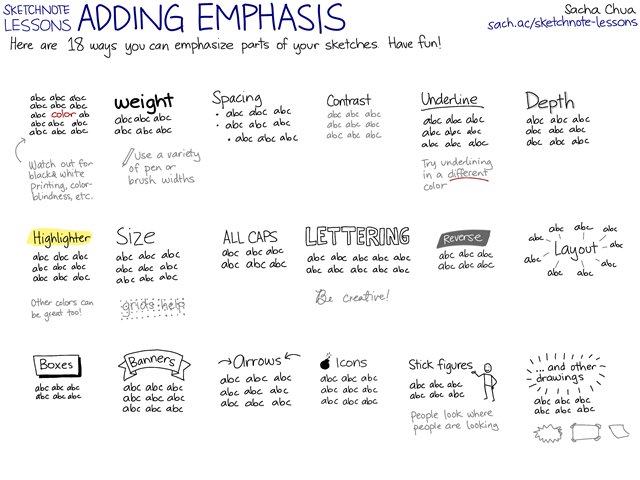 SKETCHNOTE
LESSONS ADDING EMPHASIS
Sacha Chua
sach.ac/sketchnote-lessons
Here are 18 ways you can emphasize parts of your sketches. Have fun!
abc abc abc
abc abc abc
abc color ab
abc abc abc
abc abc abc
Watch out for
black & white
printing, color-
blindness, etc.
weight
abc abc abc
abc abc abc
Use a variety
of pen or
brush widths
Spacing
• abc abc abc
• abc abc abc
• abc abc abc
Contrast
abc abc abc
abc abc abc
abc abc abc
Underline
abc abc abc
abc abc abc
abc abc abc
Try underlining
in a different
color
Depth
abc abc abc
abc abc abc
abc abc abc
Highlighter
abc abc abc
abc abc abc
abc abc abc
Other colors can
be great too!
Size
abc abc abc
abc abc abc
abc abc abc
grids help
ALL CAPS
abc abc abc
abc abc abc
LETTERING
abc abc abc abc abc
abc abc abc abc abc
Be creative!
Reverse
abc abc abc
abc abc abc
abc abc abc
abc Layout abc
abc abc abc
Boxes
abc abc abc
abc abc abc
Banners
abc abc abc
abc abc abc
abc abc abc
Arrows
abc abc abc
abc abc abc
abc abc abc
Icons
abc abc abc
abc abc abc
abc abc abc
Stick figures
abc abc abc
abc abc abc
People look where
people are looking
... and other
drawings
abc abc abc
abc abc abc